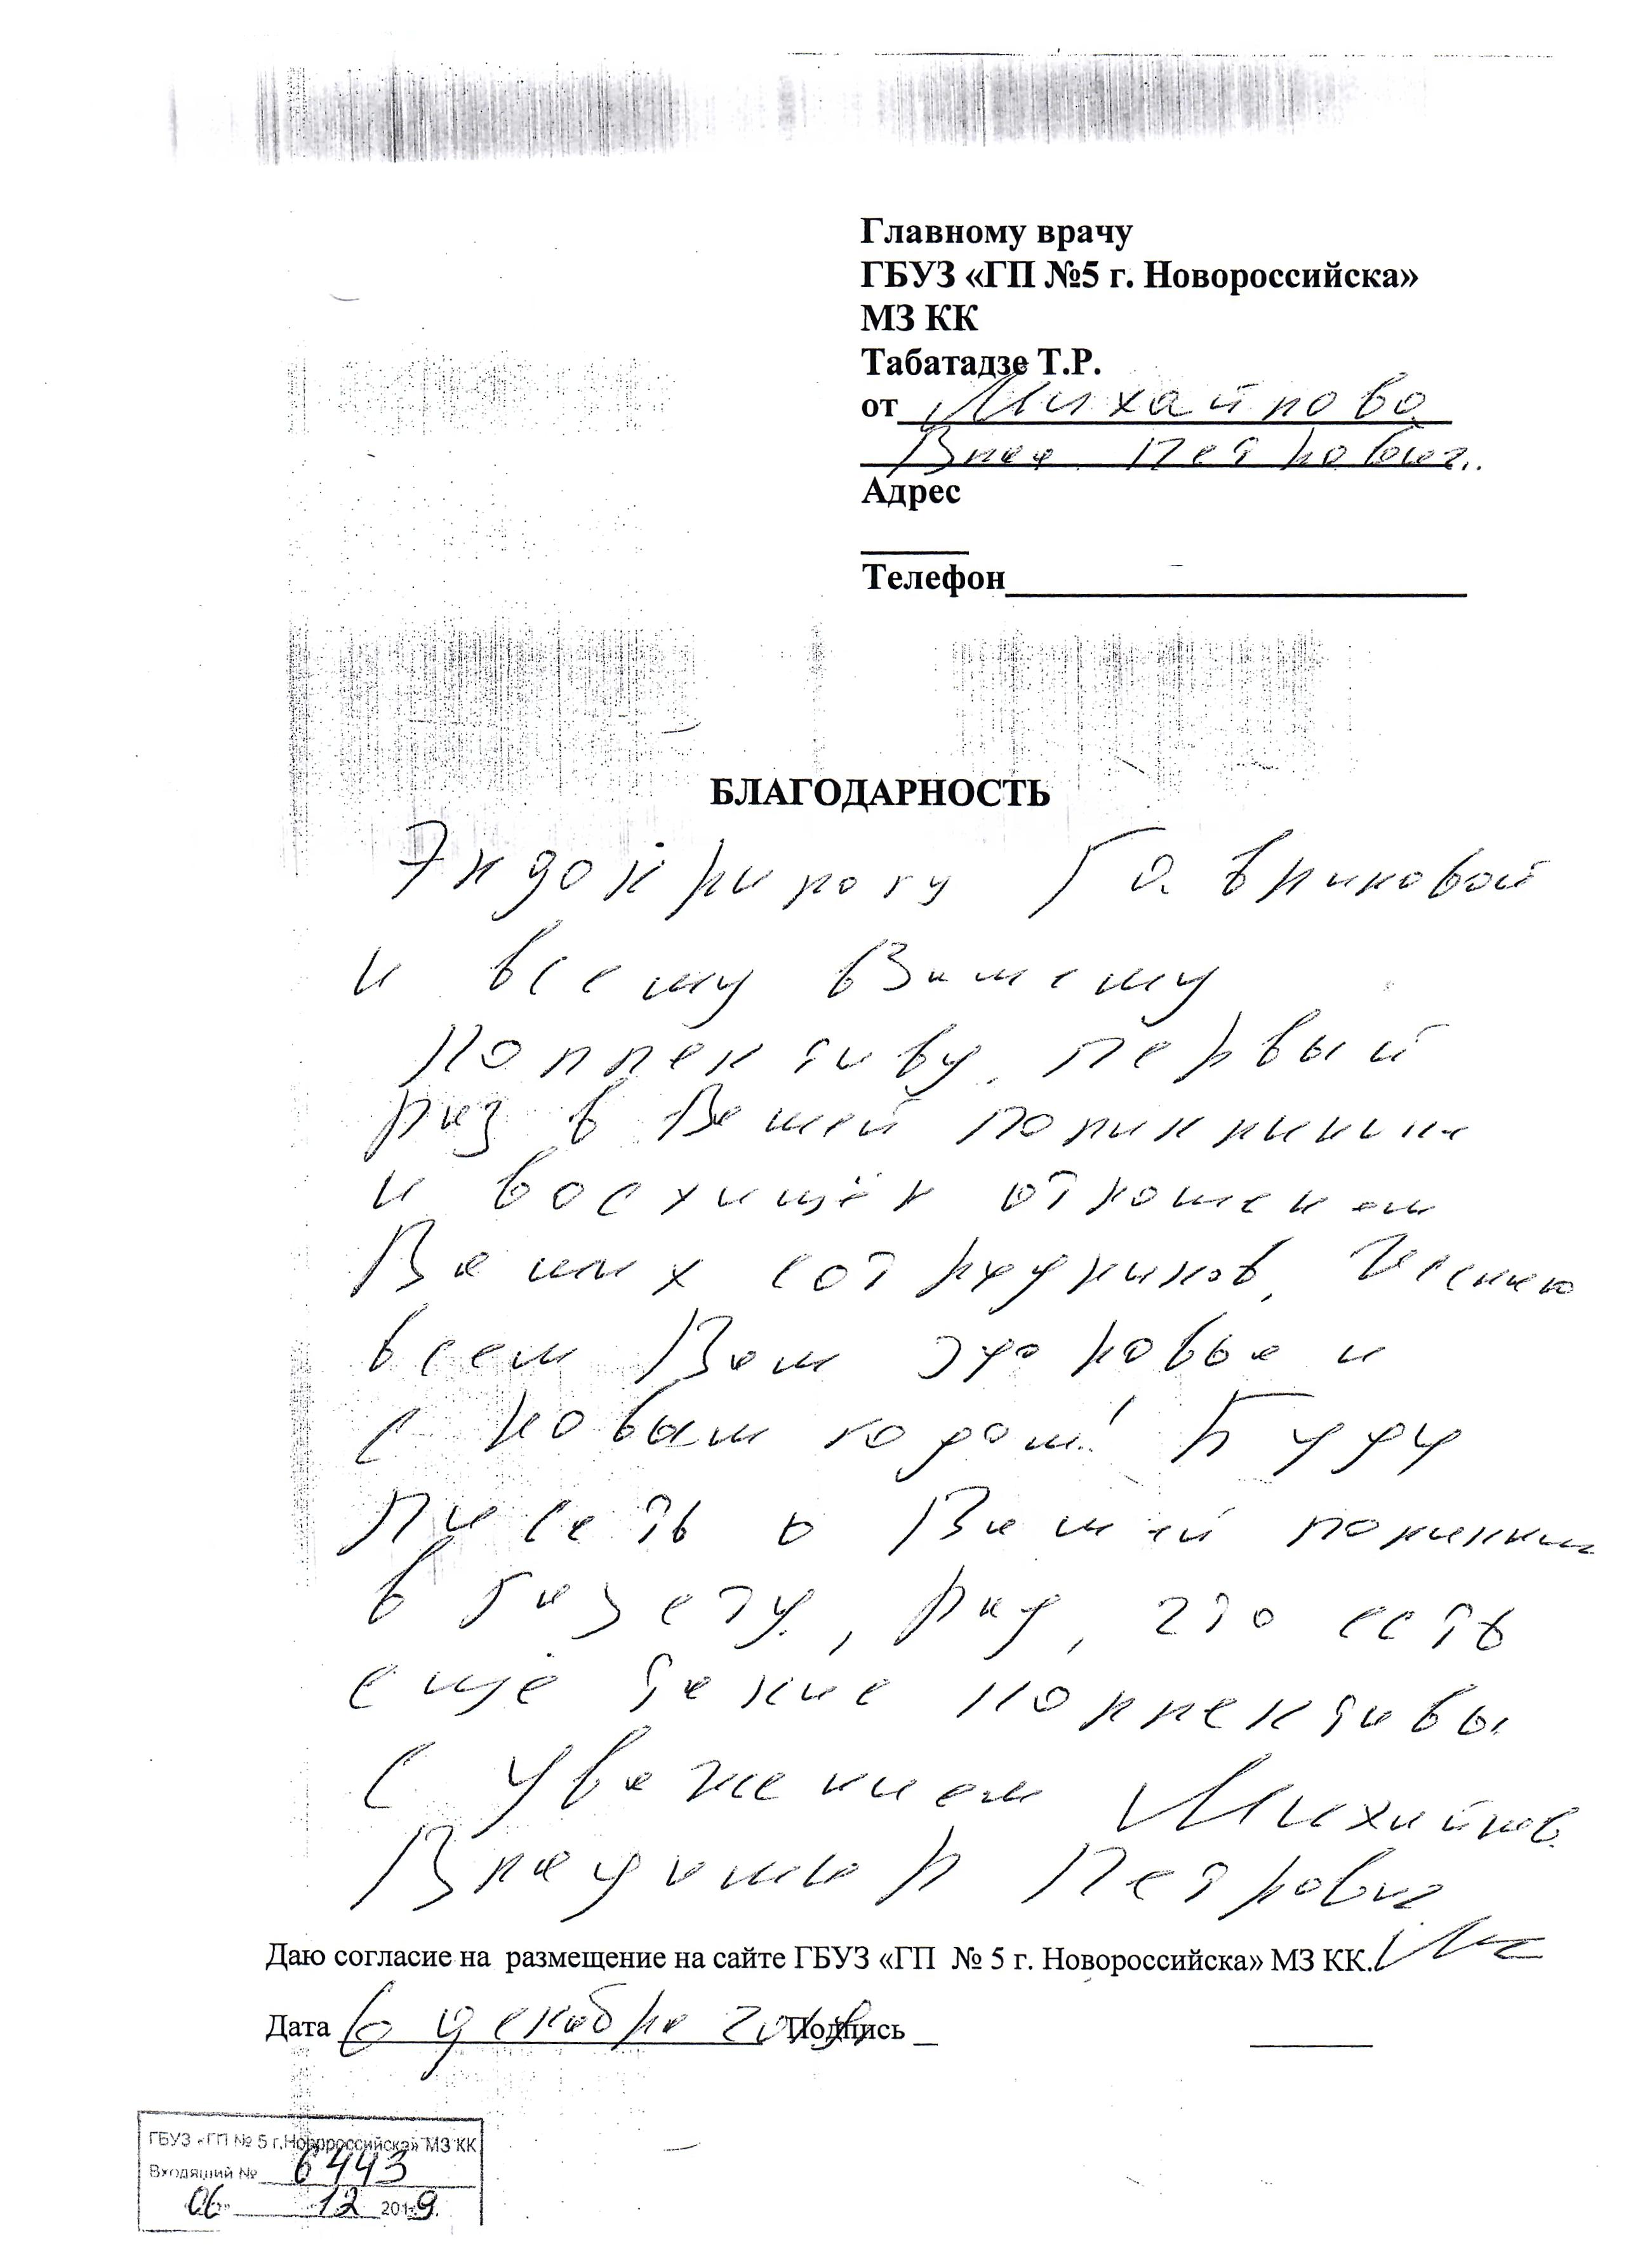 Главному врачу
ГБУЗ «ГП №5 г. Новороссийска»
МЗ КК
Табатадзе Т.Р.
от Михайлова
Влад. Петрович.
Адрес
Телефон
БЛАГОДАРНОСТЬ
Эндокринологу
и всему Вашему
коллективу. Первый
раз в Вашей поликлинике
и восхищён отношением
Ваших сотрудников. Желаю
всем Вам здоровья и
с новым годом! Буду
писать о Вашей
в газету, рад, что есть
ещё такие коллективы
С уважением Михайлов
Владимир Петрович
Даю согласие на размещение на сайте ГБУЗ «ГП № 5 г. Новороссийска» МЗ КК.
Дата 6 декабря Подпись
ГБУЗ «ГП № 5 г.Новороссийска» МЗ КК
Входящий № 6443
06 12 2019.